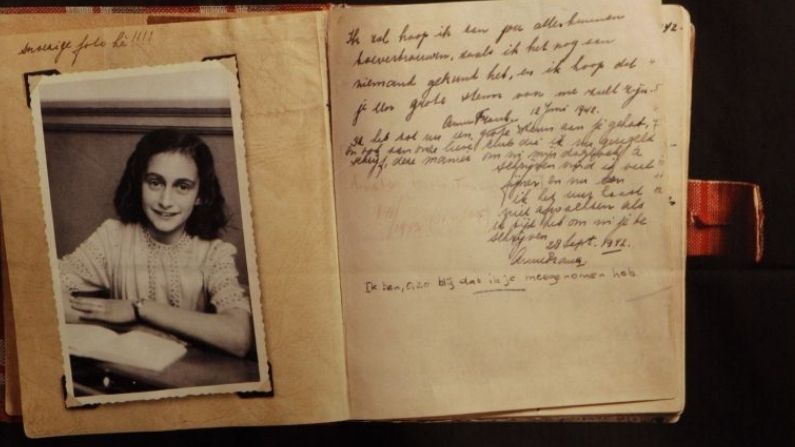 snoezige foto hè!!!!
Ik zal hoop ik aan jou alles kunnen
toevertrouwen, zoals ik het nog aan
niemand gekund heb, en ik hoop dat
je een grote steun voor me zult zijn.
Anne Frank. 12 Juni 1942.
Ik heb tot nu een grote steun aan je gehad,
en ook aan onze lieve club die ik nu geregeld
schrijf, deze manier om in mijn dagboek te
schrijven vind ik veel
fijner en nu kan
ik het uur haast
niet afwachten als
ik tijd heb om in je te
schrijven.
28 Sept. 1942.
Anne Frank.
Ik ben, o, zo blij dat ik je meegenomen heb.